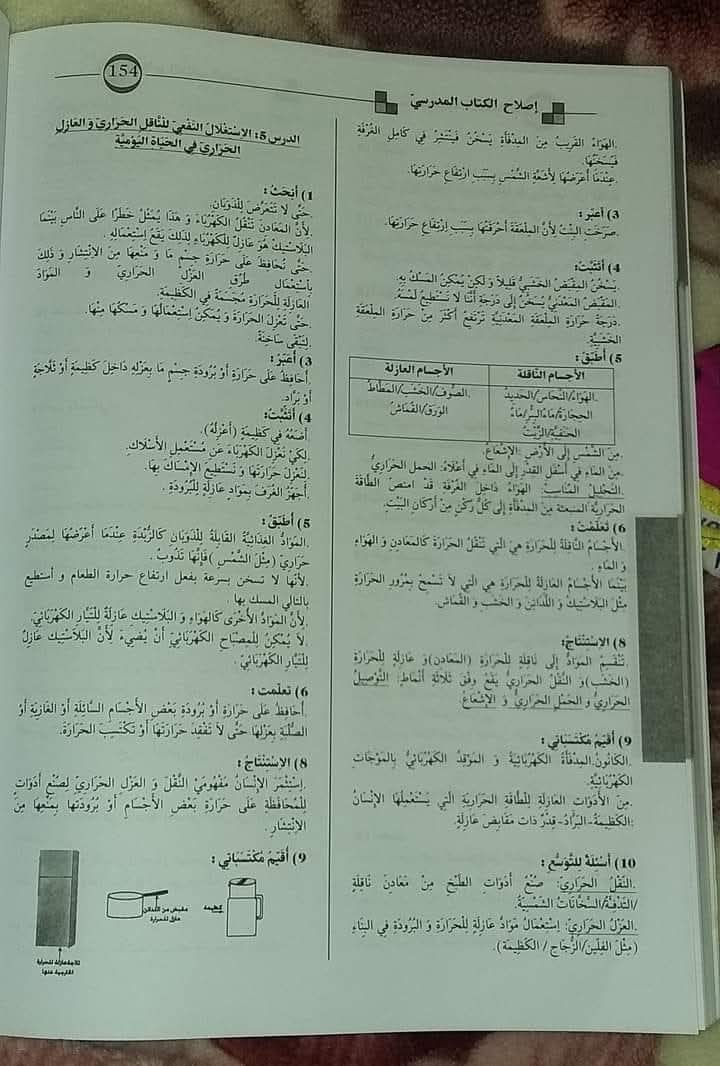 154
إصلاح الكتاب المدرسيّ
.الهَوَاءُ القَرِيبُ مِنَ المِدْفَأَةِ يَسْخُنُ فَيَنْتَشِرُ فِي كَامِلِ الغُرْفَةِ
فَيُسَخِّنُهَا.
.عِنْدَمَا أُعَرِّضُهَا لِأَشِعَّةِ الشَّمْسِ بِسَبَبِ ارْتِفَاعِ حَرَارَتِهَا.
3) أُعَبِّرُ :
.صَرَخَتِ البِنْتُ لِأَنَّ المِلْعَقَةَ أَحْرَقَتْهَا بِسَبَبِ اِرْتِفَاعِ حَرَارَتِهَا.
4) أَتَثَبَّتُ:
.يَسْخُنُ المِقْبَضُ الخَشَبِيُّ قَلِيلاً وَ لَكِنْ يُمْكِنُ المَسْكُ بِهِ.
.المِقْبَضُ المَعْدَنِيُّ يَسْخُنُ إِلَى دَرَجَةِ أَنَّنَا لاَ نَسْتَطِيعُ لَمْسَهُ.
.دَرَجَةُ حَرَارَةِ المِلْعَقَةِ المَعْدَنِيَّةِ تَرْتَفِعُ أَكْثَرَ مِنْ حَرَارَةِ المِلْعَقَةِ
الخَشَبِيَّةِ.
5) أُطَبِّقُ :
الأجسام الناقلة
الأجسام العازلة
.الهَوَاءُ/النُّحَاسُ/الحَدِيدُ
.الصُّوفُ/الخَشَبُ/المَطَّاطُ
الحِجَارَةُ/مَاءُ البِئْرِ/مَاءُ
الوَرَقُ/القُمَاشُ
الحَنَفِيَّةِ/الزَّيْتُ
.مِنَ الشَّمْسِ إِلَى الأَرْضِ :الإِشْعَاعُ.
.مِنَ المَاءِ فِي أَسْفَلِ القِدْرِ إِلَى المَاءِ فِي أَعْلاَهُ: الحمل الحَرَارِيُّ
.التَّحْلِيلُ المُنَاسِبُ: الهَوَاءُ دَاخِلَ الغُرْفَةِ قَدْ امتصَّ الطَّاقَةَ
الحَرَارِيَّةَ المنبعثة مِنَ المِدْفَأَةِ إِلَى كُلِّ رُكْنٍ مِنْ أَرْكَانِ البَيْتِ.
6) تَعَلَّمْتُ :
.الأَجْسَامُ النَّاقِلَةُ لِلْحَرَارَةِ هِيَ الَّتِي تَنْقُلُ الحَرَارَةَ كَالمَعَادِنِ وَ الهَوَاءِ
وَ المَاءِ .
بَيْنَمَا الأَجْسَامُ العَازِلَةُ لِلْحَرَارَةِ هِيَ الَّتِي لاَ تَسْمَحُ بِمُرُورِ الحَرَارَةِ
مِثْلُ البَلاَسْتِيكِ وَ اللَّدَائِنِ وَ الخَشَبِ وَ القُمَاشِ.
8) الاِسْتِنْتَاجُ:
.تَنْقَسِمُ المَوَادُّ إِلَى نَاقِلَةٍ لِلْحَرَارَةِ (المَعَادِنِ) وَ عَازِلَةٍ لِلْحَرَارَةِ
(الخَشَبِ)وَ النَّقْلُ الحَرَارِيُّ يَقَعُ وِفْقَ ثَلاَثَةِ أَنْمَاطٍ: التَّوْصِيلُ
الحَرَارِيُّ وَ الحَمْلُ الحَرَارِيُّ وَ الإِشْعَاعُ.
9) أُقَيِّمُ مُكْتَسَبَاتِي :
.الكَانُونُ.المِدْفَأَةُ الكَهْرَبَائِيَّةُ وَ المَوْقِدُ الكَهْرَبَائِيُّ بِالمَوْجَاتِ
الكَهْرَبَائِيَّةِ.
.مِنَ الأَدَوَاتِ العَازِلَةِ لِلطَّاقَةِ الحَرَارِيَّةِ الَّتِي يَسْتَعْمِلُهَا الإِنْسَانُ
:الكَظِيمَةُ-البَرَّادُ-قِدْرٌ ذَات مَقَابِضَ عَازِلَةٍ.
10) أَسْئِلَةٌ لِلتَّوَسُّعِ :
.النَّقْلُ الحَرَارِيُّ: صُنْعُ أَدَوَاتِ الطَّبْخِ مِنْ مَعَادِنَ نَاقِلَةٍ
/التَّدْفِئَةُ/السَّخَّانَاتُ الشَّمْسِيَّةُ.
.العَزْلُ الحَرَارِيُّ: اِسْتِعْمَالُ مَوَادَّ عَازِلَةٍ لِلْحَرَارَةِ وَ البُرُودَةِ فِي البِنَاءِ
(مِثْلُ الفِلِّينِ/الزُّجَاجِ / الكَظِيمَةِ).
الدرس 5: الاِسْتِغْلاَلُ النَّفْعِيُّ لِلنَّاقِلِ الحَرَارِيِّ وَ العَازِلِ
الحَرَارِيِّ فِي الحَيَاةِ اليَوْمِيَّةِ
1) أَبْحَثُ :
.حَتَّى لاَ تَتَعَرَّضَ لِلذَّوَبَانِ.
.لِأَنَّ المَعَادِنَ تَنْقُلُ الكَهْرَبَاءَ وَ هَذَا يُمَثِّلُ خَطَرًا عَلَى النَّاسِ بَيْنَمَا
البَلاَسْتِيكُ هُوَ عَازِلٌ لِلْكَهْرَبَاءِ لِذَلِكَ يَقَعُ اِسْتِعْمَالُهُ.
.حَتَّى نُحَافِظَ عَلَى حَرَارَةِ جِسْمٍ مَا وَ مَنْعِهَا مِنَ الاِنْتِشَارِ وَ ذَلِكَ
بِاسْتِعْمَالِ طُرُقِ العَزْلِ الحَرَارِيِّ وَ المَوَادِّ
العَازِلَةِ لِلْحَرَارَةِ مُجَسَّمَةً فِي الكَظِيمَةِ.
.حَتَّى تَعْزِلَ الحَرَارَةَ وَ يُمْكِنَ اِسْتِعْمَالُهَا وَ مَسْكُهَا مِنْهَا.
.لِتَبْقَى سَاخِنَةً.
3) أُعَبِّرُ :
.أُحَافِظُ عَلَى حَرَارَةِ أَوْ بُرُودَةِ جِسْمٍ مَا بِعَزْلِهِ دَاخِلَ كَظِيمَةٍ أَوْ ثَلاَّجَةٍ
أَوْ بَرَّادٍ.
4) أَتَثَبَّتُ:
.أَضَعُهُ فِي كَظِيمَةٍ (أَعْزِلُهُ).
.لِكَيْ نَعْزِلَ الكَهْرَبَاءَ عَنْ مُسْتَعْمِلِ الأَسْلاَكِ.
.لِنَعْزِلَ حَرَارَتَهَا وَ نَسْتَطِيعَ الإِمْسَاكَ بِهَا.
.أُجَهِّزُ الغُرَفَ بِمَوَادَّ عَازِلَةٍ لِلْبُرُودَةِ.
5) أُطَبِّقُ :
.المَوَادُّ الغِذَائِيَّةُ القَابِلَةُ لِلذَّوَبَانِ كَالزُّبْدَةِ عِنْدَمَا أُعَرِّضُهَا لِمَصْدَرٍ
حَرَارِيٍّ (مِثْلُ الشَّمْسِ) فَإِنَّهَا تَذُوبُ .
.لأنّها لا تسخن بسرعة بفعل ارتفاع حرارة الطعام و أستطيع
بالتالي المسك بها .
.لِأَنَّ المَوَادَّ الأُخْرَى كَالهَوَاءِ وَ البَلاَسْتِيكِ عَازِلَةٌ لِلتَّيَّارِ الكَهْرَبَائِيِّ.
.لاَ يُمْكِنُ لِلْمِصْبَاحِ الكَهْرَبَائِيِّ أَنْ يُضِيءَ لِأَنَّ البَلاَسْتِيكَ عَازِلٌ
لِلتَّيَّارِ الكَهْرَبَائِيِّ .
6) تعلّمت :
.أُحَافِظُ عَلَى حَرَارَةِ أَوْ بُرُودَةِ بَعْضِ الأَجْسَامِ السَّائِلَةِ أَوْ الغَازِيَّةِ أَوْ
الصُّلْبَةِ بِعَزْلِهَا حَتَّى لاَ تَفْقِدَ حَرَارَتَهَا أَوْ تَكْتَسِبَ الحَرَارَةَ.
8) الاِسْتِنْتَاجُ :
.اِسْتَثْمَرَ الإِنْسَانُ مَفْهُومَيْ النَّقْلِ وَ العَزْلِ الحَرَارِيِّ لِصُنْعِ أَدَوَاتٍ
لِلْمُحَافَظَةِ عَلَى حَرَارَةِ بَعْضِ الأَجْسَامِ أَوْ بُرُودَتِهَا بِمَنْعِهَا مِنَ
الاِنْتِشَارِ .
9) أُقَيِّمُ مُكْتَسَبَاتِي :
كظيمة
مقبض من اللدائن
عازل للحرارة
ثلاجة عازلة للحرارة
الخارجية عنها